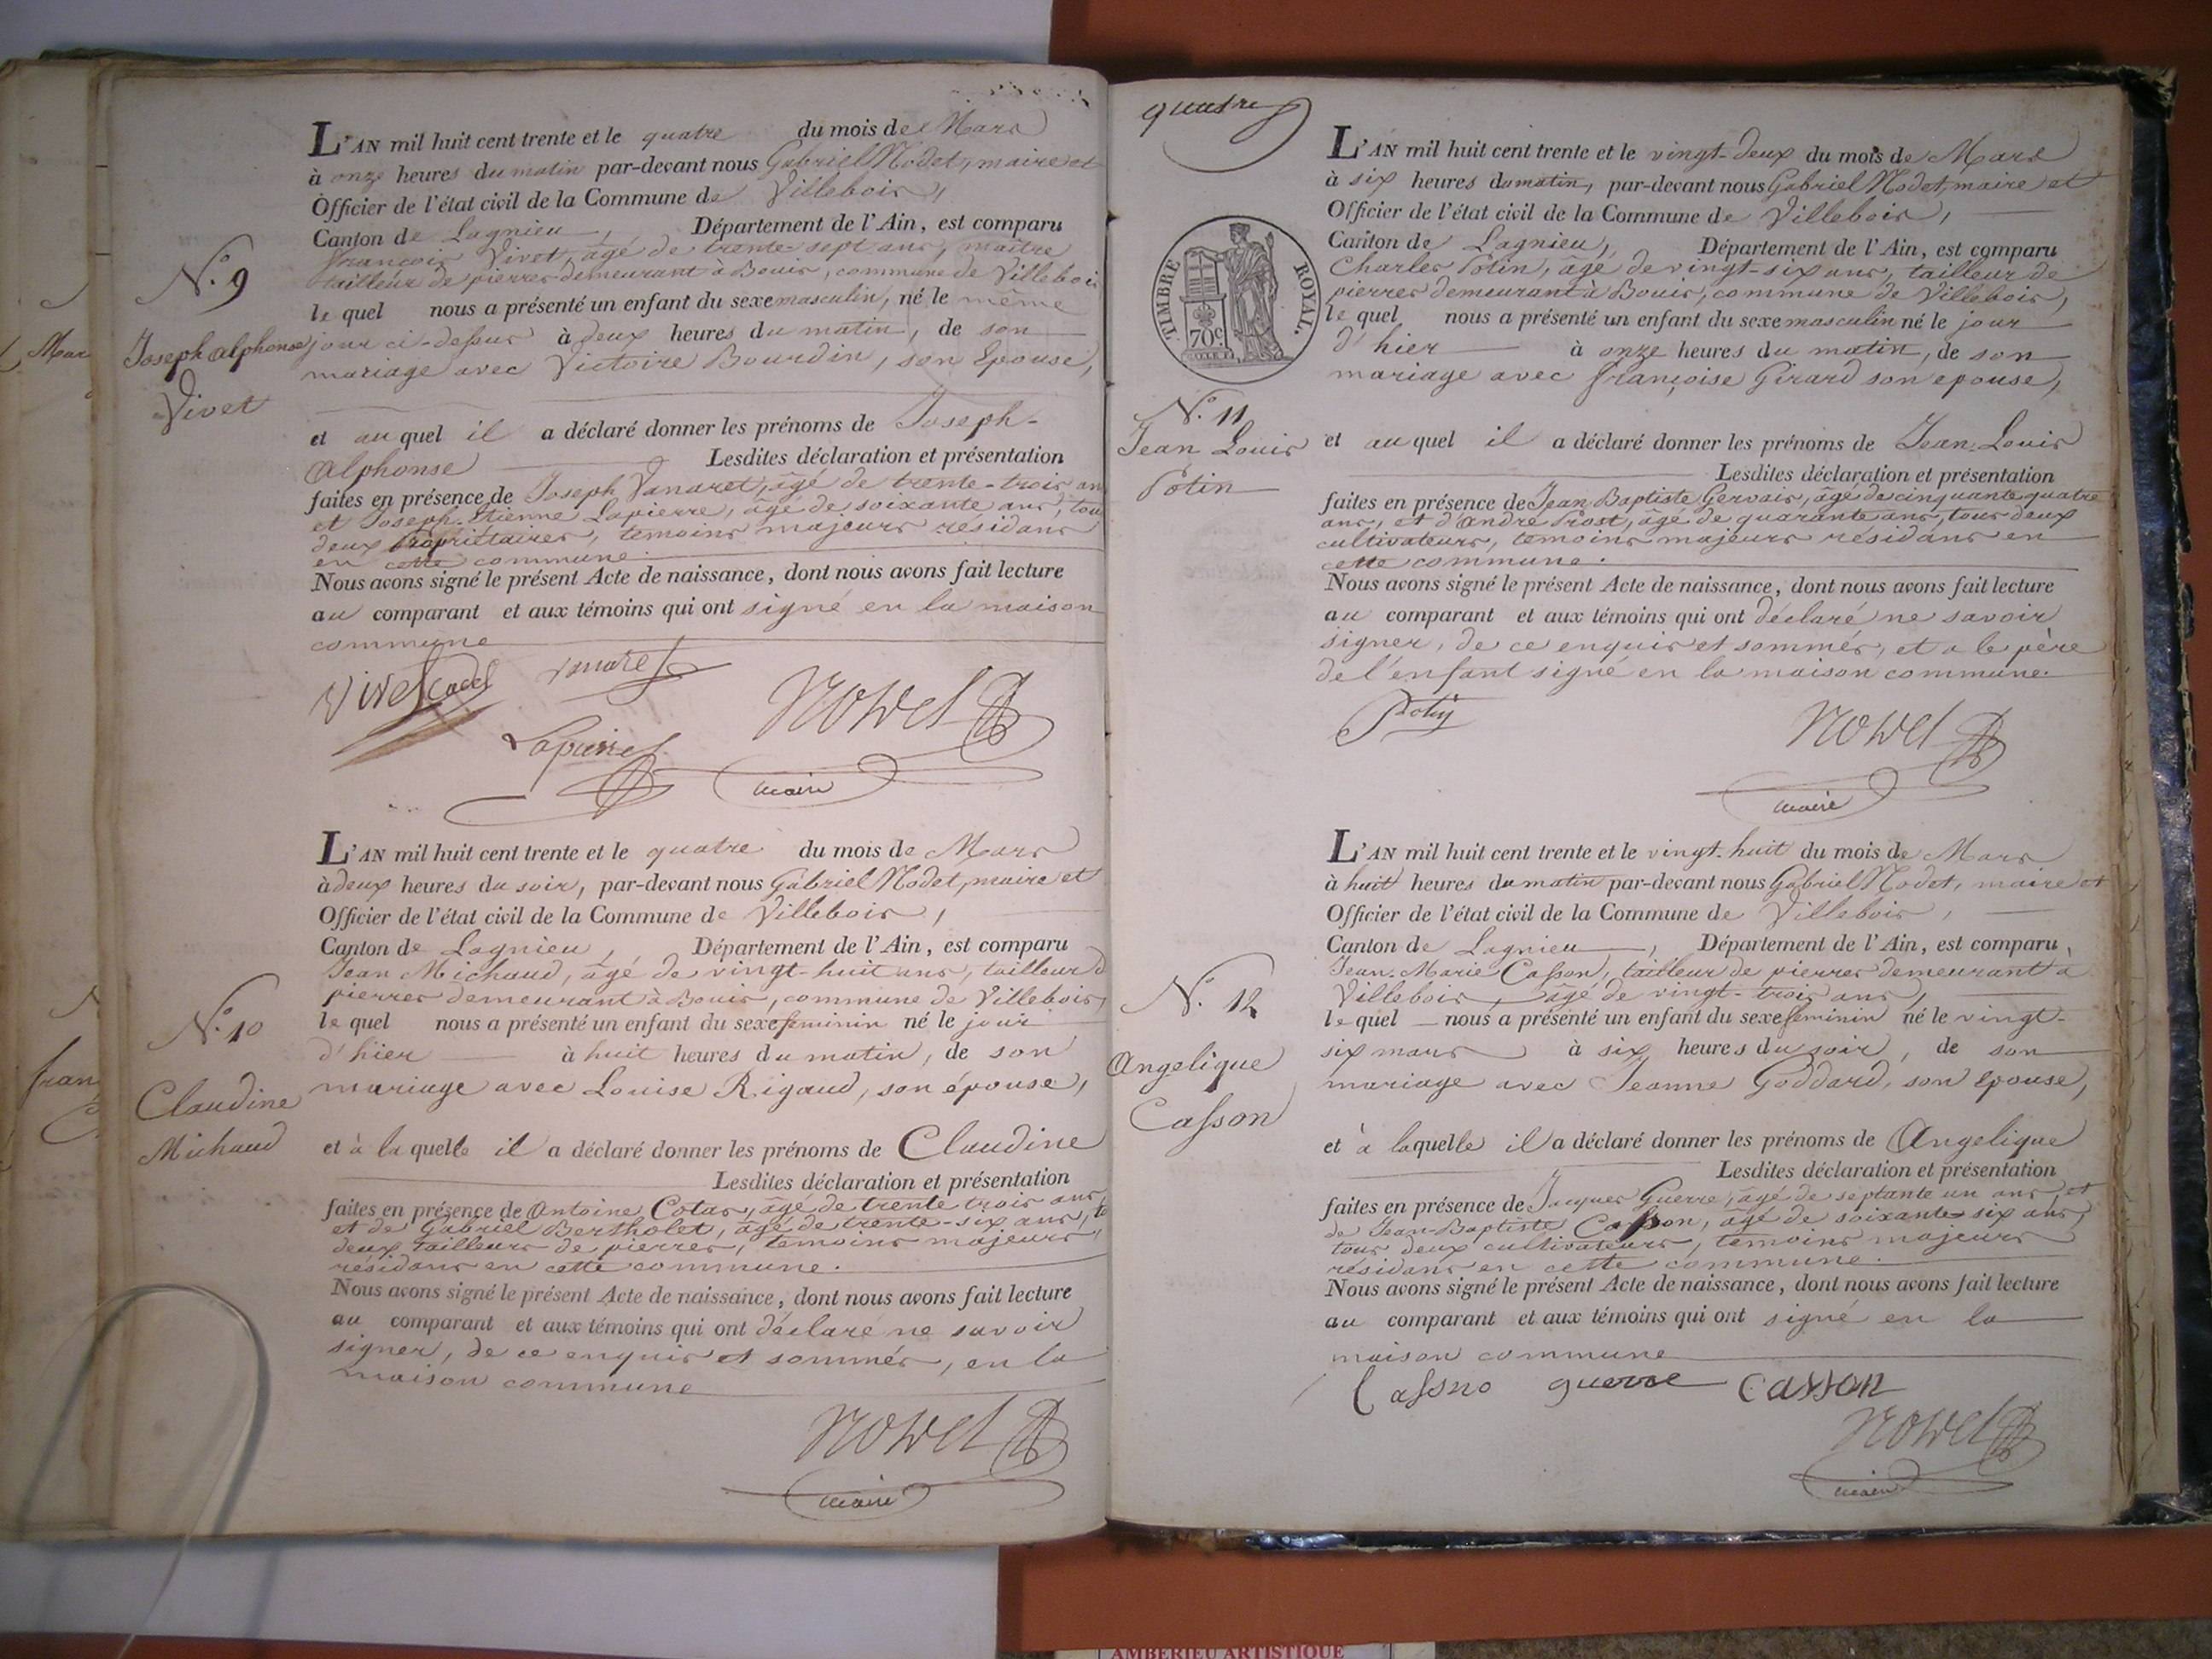 L'AN mil huit cent trente et le quatre du mois de Mars
à onze heures du matin par-devant nous Gabriel Nodet, maire et
Officier de l'état civil de la Commune de Villebois,
Canton de Lagnieu, Département de l'Ain, est comparu
François Vivet, âgé de trente-sept ans, maître
tailleur de pierres demeurant à Bouis, commune de Villebois
le quel nous a présenté un enfant du sexe masculin, né le même
jour ci-dessus à deux heures du matin, de son
mariage avec Victoire Bourdin, son Epouse,
et au quel il a déclaré donner les prénoms de Joseph-
Alphonse Lesdites déclaration et présentation
faites en présence de Joseph Vanaret, âgé de trente-trois an
et Joseph-Etienne Lapierre, âgé de soixante ans, tous
deux propriétaires, temoins majeurs residans
en cette commune.
Nous avons signé le présent Acte de naissance, dont nous avons fait lecture
au comparant et aux témoins qui ont signé en la maison
commune
N.° 9
Joseph Alphonse
Vivet
Vivet cadet
vanaret
Lapierre
Nodet
maire
L'AN mil huit cent trente et le quatre du mois de Mars
à deux heures du soir, par-devant nous Gabriel Nodet, maire et
Officier de l'état civil de la Commune de Villebois,
Canton de Lagnieu, Département de l'Ain, est comparu
Jean Michaud, âgé de vingt-huit ans, tailleur d
pierres demeurant à Bouis, commune de Villebois,
le quel nous a présenté un enfant du sexe feminin né le jour
d'hier à huit heures du matin, de son
mariage avec Louise Rigaud, son épouse,
et à la quelle il a déclaré donner les prénoms de Claudine
Lesdites déclaration et présentation
faites en présence de Antoine Cotas, âgé de trente trois ans,
et de Gabriel Bertholet, âgé de trente-six ans, to
deux tailleurs de pierres, temoins majeurs,
residans en cette commune.
Nous avons signé le présent Acte de naissance, dont nous avons fait lecture
au comparant et aux témoins qui ont déclaré ne savoir
signer, de ce enquis et sommés, en la
maison commune
N.° 10
Claudine
Michaud
Nodet
maire
quatre
TIMBRE ROYAL.
70c.
L'AN mil huit cent trente et le vingt-deux du mois de Mars
à six heures du matin, par-devant nous Gabriel Nodet, maire et
Officier de l'état civil de la Commune de Villebois,
Canton de Lagnieu, Département de l'Ain, est comparu
Charles Potin, âgé de vingt-six ans, tailleur de
pierres demeurant à Bouis, commune de Villebois,
le quel nous a présenté un enfant du sexe masculin né le jour
d'hier à onze heures du matin, de son
mariage avec françoise Girard son epouse,
et au quel il a déclaré donner les prénoms de Jean-Louis
Lesdites déclaration et présentation
faites en présence de Jean Baptiste Gervais, âgé de cinquante quatre
ans, et d'andré Prost, âgé de quarante ans, tous deux
cultivateurs, temoins majeurs residans en
cette commune.
Nous avons signé le présent Acte de naissance, dont nous avons fait lecture
au comparant et aux témoins qui ont déclaré ne savoir
signer, de ce enquis et sommés, et a le père
de l'enfant signé en la maison commune.
N.° 11
Jean Louis
Potin
Potin
Nodet
maire
L'AN mil huit cent trente et le vingt-huit du mois de Mars
à huit heures du matin par-devant nous Gabriel Nodet, maire et
Officier de l'état civil de la Commune de Villebois,
Canton de Lagnieu, Département de l'Ain, est comparu,
Jean-Marie Casson, tailleur de pierres demeurant à
Villebois, âgé de vingt-trois ans,
le quel nous a présenté un enfant du sexe feminin né le vingt-
six mars à six heures du soir, de son
mariage avec Jeanne Goddard, son épouse,
et à laquelle il a déclaré donner les prénoms de Angelique
Lesdites déclaration et présentation
faites en présence de Jacques Guerre, âgé de septante un ans, et
de Jean-Baptiste Casson, âgé de soixante-six ans,
tous deux cultivateurs, temoins majeurs
residans en cette commune.
Nous avons signé le présent Acte de naissance, dont nous avons fait lecture
au comparant et aux témoins qui ont signé en la
maison commune
N.° 12
Angelique
Casson
Cassno guerre casson
Nodet
maire
Mar
fran
AMBERIEU ARTISTIQUE